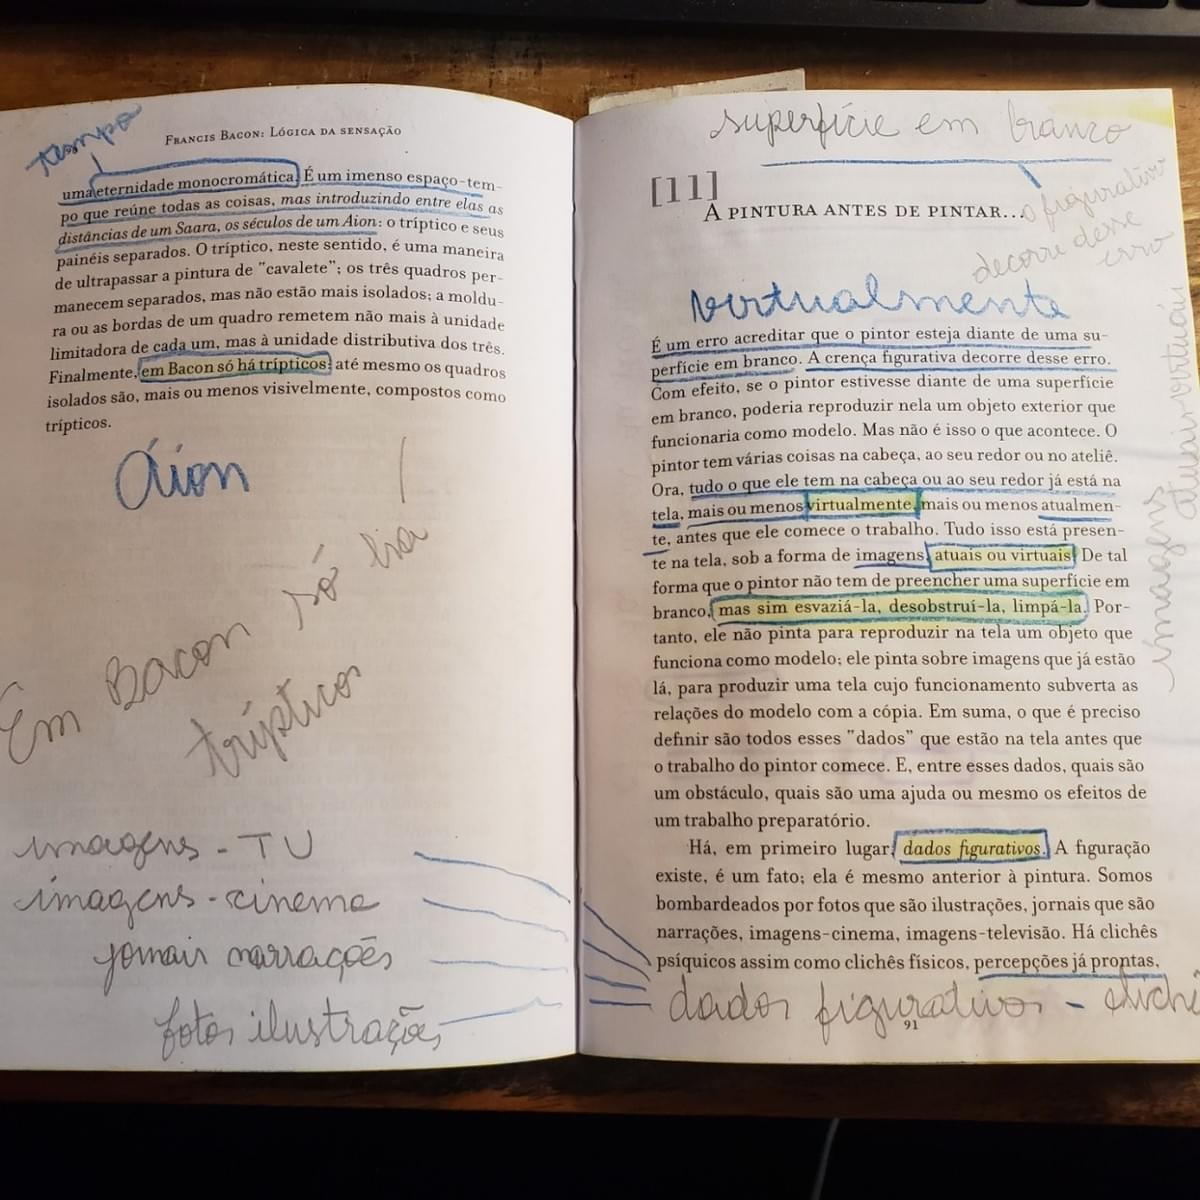 tempo
FRANCIS BACON: LÓGICA DA SENSAÇÃO
uma eternidade monocromática. É um imenso espaço-tem-
po que reúne todas as coisas, mas introduzindo entre elas as
distâncias de um Saara, os séculos de um Aion: o tríptico e seus
painéis separados. O tríptico, neste sentido, é uma maneira
de ultrapassar a pintura de "cavalete"; os três quadros per-
manecem separados, mas não estão mais isolados; a moldu-
ra ou as bordas de um quadro remetem não mais à unidade
limitadora de cada um, mas à unidade distributiva dos três.
Finalmente, em Bacon só há trípticos: até mesmo os quadros
isolados são, mais ou menos visivelmente, compostos como
trípticos.
Áion
Em Bacon só há
trípticos
imagens - TV
imagens - cinema
jornais narrações
fotos ilustrações
superfície em branco
[11]
A PINTURA ANTES DE PINTAR...
o figurativo
decorre desse
erro
virtualmente
É um erro acreditar que o pintor esteja diante de uma su-
perfície em branco. A crença figurativa decorre desse erro.
Com efeito, se o pintor estivesse diante de uma superfície
em branco, poderia reproduzir nela um objeto exterior que
funcionaria como modelo. Mas não é isso o que acontece. O
pintor tem várias coisas na cabeça, ao seu redor ou no ateliê.
Ora, tudo o que ele tem na cabeça ou ao seu redor já está na
tela, mais ou menos virtualmente, mais ou menos atualmen-
te, antes que ele comece o trabalho. Tudo isso está presen-
te na tela, sob a forma de imagens, atuais ou virtuais. De tal
forma que o pintor não tem de preencher uma superfície em
branco, mas sim esvaziá-la, desobstruí-la, limpá-la. Por-
tanto, ele não pinta para reproduzir na tela um objeto que
funciona como modelo; ele pinta sobre imagens que já estão
lá, para produzir uma tela cujo funcionamento subverta as
relações do modelo com a cópia. Em suma, o que é preciso
definir são todos esses "dados" que estão na tela antes que
o trabalho do pintor comece. E, entre esses dados, quais são
um obstáculo, quais são uma ajuda ou mesmo os efeitos de
um trabalho preparatório.
Há, em primeiro lugar, dados figurativos. A figuração
existe, é um fato; ela é mesmo anterior à pintura. Somos
bombardeados por fotos que são ilustrações, jornais que são
narrações, imagens-cinema, imagens-televisão. Há clichês
psíquicos assim como clichês físicos, percepções já prontas,
imagens
atuais virtuais
dados figurativos - clichê
91